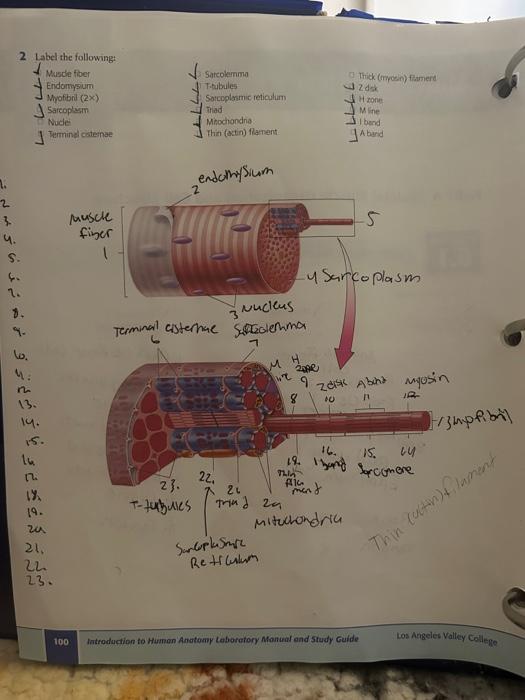 2 Label the following:
Muscle fiber
Endomysium
Myofibril (2×)
Sarcoplasm
Nuclei
Terminal cisternae
Sarcolemma
T-tubules
Sarcoplasmic reticulum
Triad
Mitochondria
Thin (actin) filament
Thick (myosin) filament
Z disk
H zone
M line
I band
A band
1.
2
3.
4.
5.
6.
7.
8.
9.
10.
11.
12
13.
14.
15.
16
17.
18.
19.
20
21.
22
23.
endomysium
2
Muscle
fiber
1
5
4 Sarcoplasm
3 Nucleus
Terminal cisternae
6
Sarcolemma
7
M
8
H
zone
9
Z disk
10
A band
11
Myosin
12
13
14
15.
Sarcomere
16.
I band
19.
Thin
fila
ment
20
Mitochondria
21
Triad
22.
Sarcoplasmic
Reticulum
23.
T-tubules
Thin (actin) filament
100 Introduction to Human Anatomy Laboratory Manual and Study Guide
Los Angeles Valley College